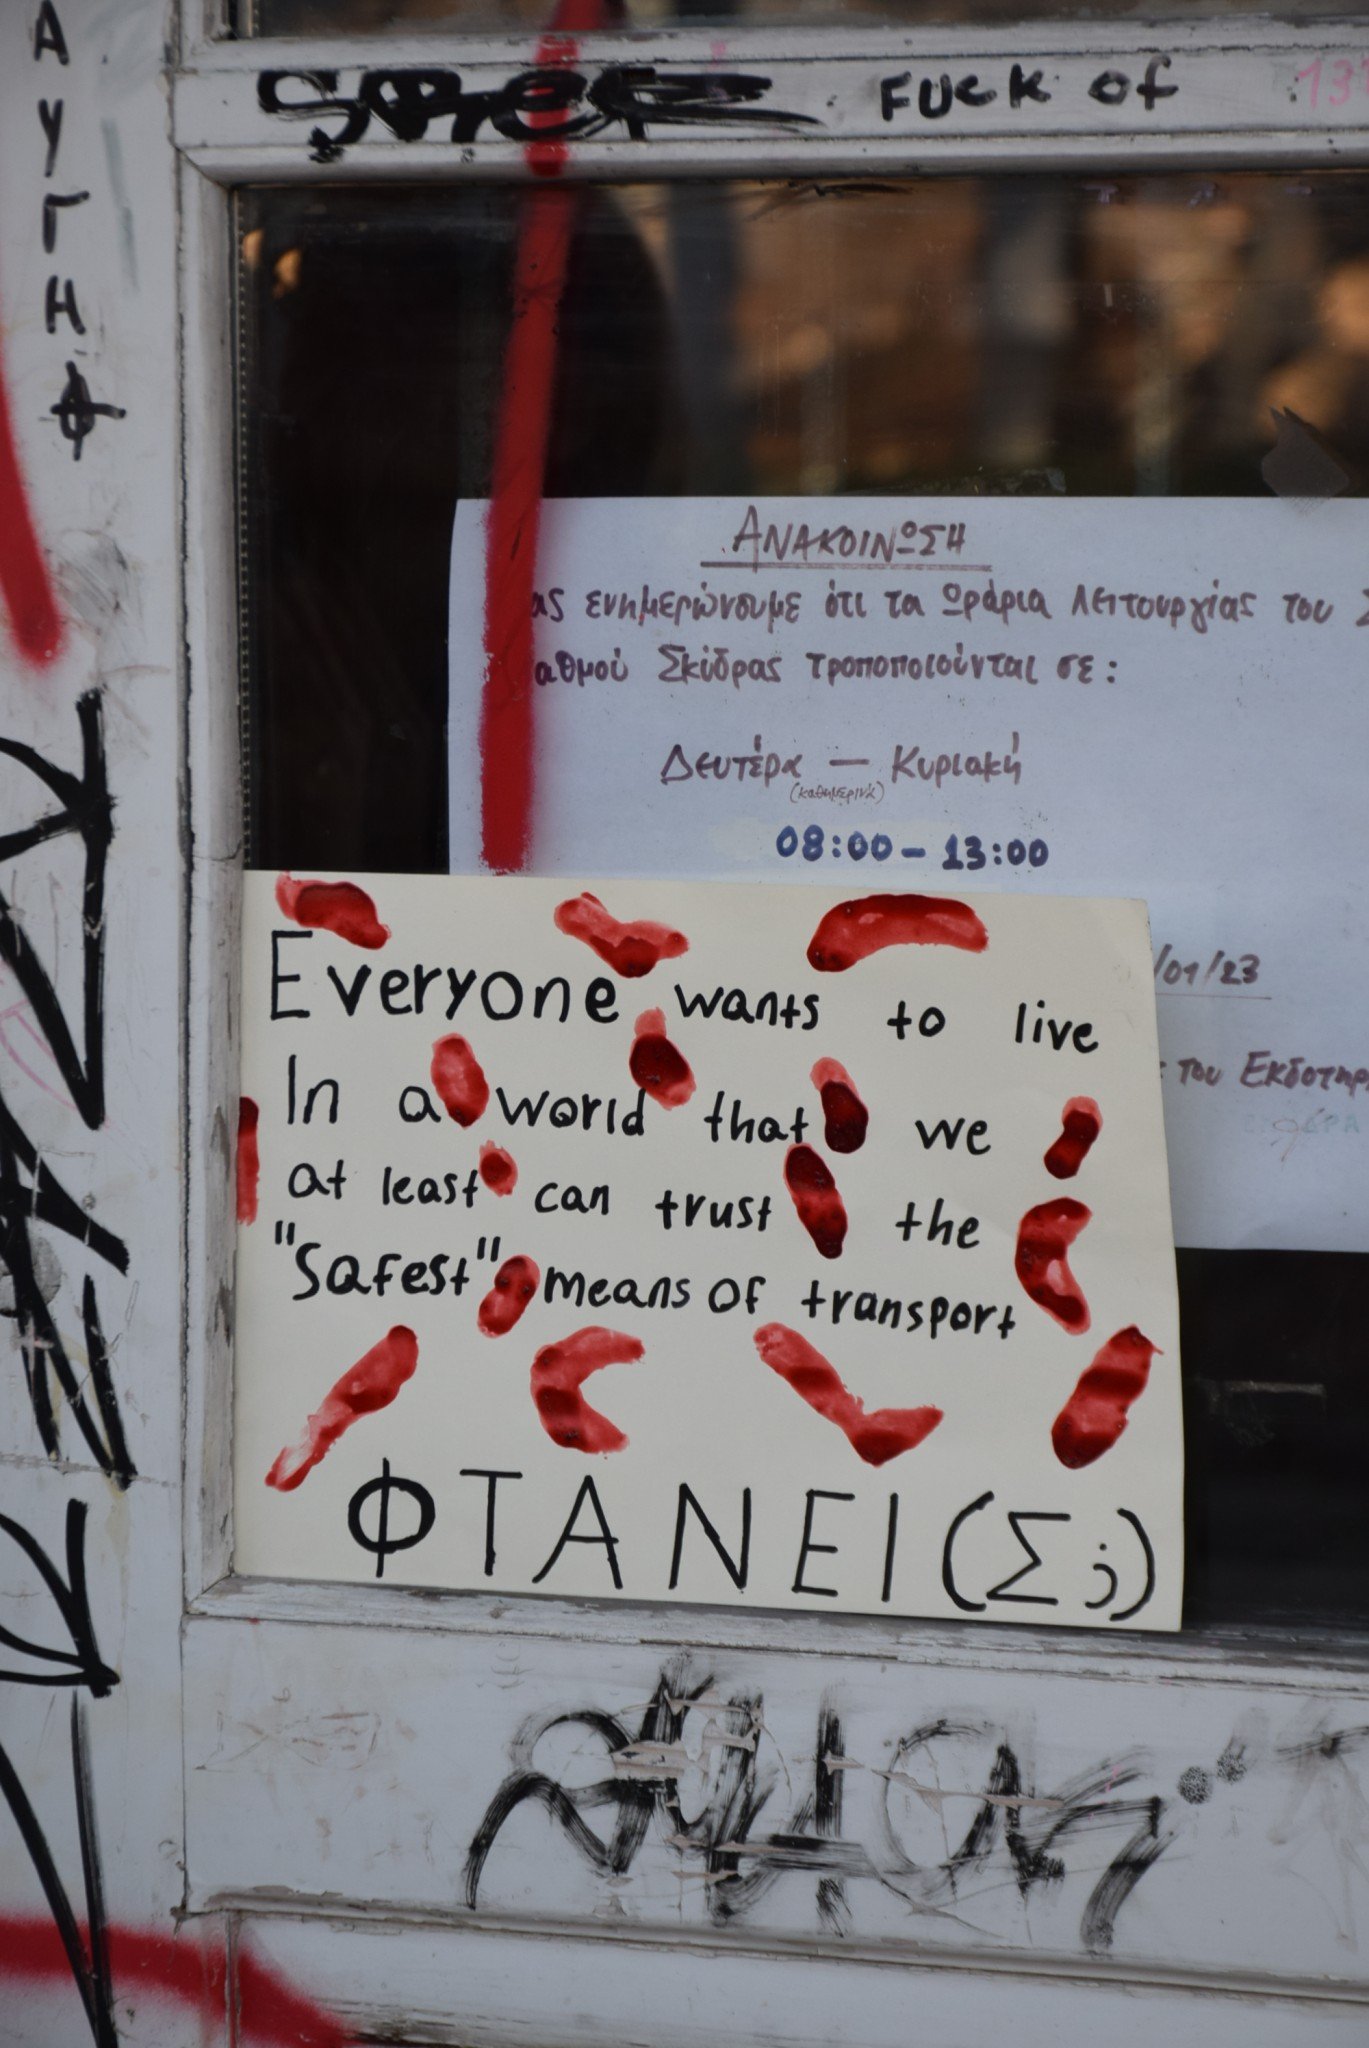 ΑΥΓΗΦ
FUCK OF
ΑΝΑΚΟΙΝΩΣΗ
ας ενημερώνουμε ότι τα Ωράρια λειτουργίας του Σ
αθμού Σκύδρας τροποποιούνται σε:
Δευτέρα — Κυριακή
(καθημερινά)
08:00 - 13:00
/01/23
του Εκδοτηρ
Everyone wants to live
In a world that we
at least can trust the
"Safest" means of transport
ΦΤΑΝΕΙ(Σ;)